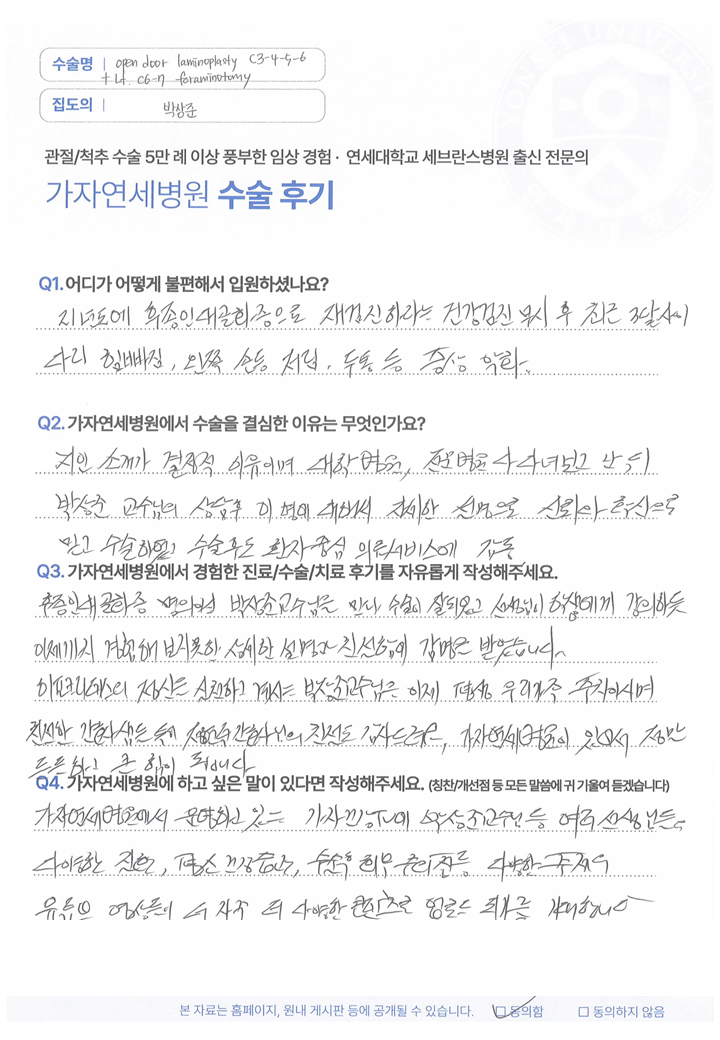 수술명 | open door laminoplasty C3-4-5-6
+ Lt. C6-7 foraminotomy
집도의 | 박상준
관절/척추 수술 5만 례 이상 풍부한 임상 경험 · 연세대학교 세브란스병원 출신 전문의
가자연세병원 수술 후기
Q1. 어디가 어떻게 불편해서 입원하셨나요?
지난도에 후종인대골화증으로 재검진하라는 건강검진 무시 후 최근 3달사이
다리 힘빠짐, 왼쪽 손등 저림, 두통 등 증상 악화.
Q2. 가자연세병원에서 수술을 결심한 이유는 무엇인가요?
지인 소개가 결정적 이유이며 대학병원, 전문병원 다 다녀보고 난 뒤
박상준 교수님의 상담후 이 병에 대해서 자세한 설명으로 신뢰와 확신으로
믿고 수술하였고 수술후도 환자중심 의료서비스에 감동
Q3. 가자연세병원에서 경험한 진료/수술/치료 후기를 자유롭게 작성해주세요.
후종인대골화증 명의이신 박상준교수님을 만나 수술이 잘되었고 선생님이 학생에게 강의하듯
이제까지 경험해보지못한 상세한 설명과 친절함에 감명을 받았습니다.
히포크라테스의 정신을 실천하고 계시는 박상준교수님은 이제 평생 우리가족 주치의시며
친절한 간호사님들 특히 간호사님의 친절도 감사드리고, 가자연세병원이 있어서 정말
든든하고 큰 힘이 됩니다
Q4. 가자연세병원에 하고 싶은 말이 있다면 작성해주세요. (칭찬/개선점 등 모든 말씀에 귀 기울여 듣겠습니다)
가자연세병원에서 운영하고 있는 가자건강TV에 박상준교수님 등 여러 선생님들의
다양한 질환, 평소 건강습관, 수술후 등 다양한 주제의
유튜브 영상들이 더 자주 더 다양한 컨텐츠로 업로드 되기를 기대합니다
본 자료는 홈페이지, 원내 게시판 등에 공개될 수 있습니다. ☑ 동의함 □ 동의하지 않음